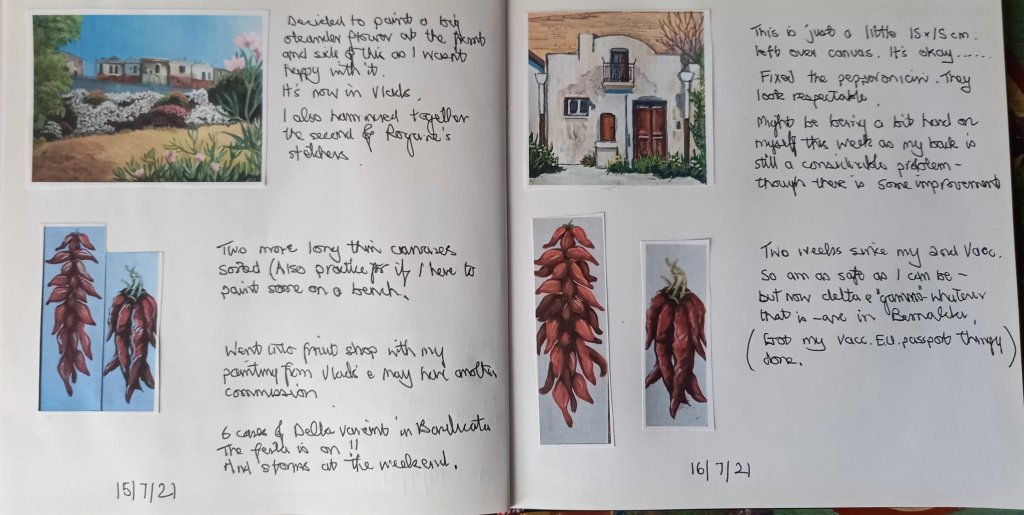 Decided to paint a big
oleander flower at the front
and side of this as I wasnt
happy with it.
It's now in Vlads.
I also hammered together
the second of
stetchers
Two more long thin canvases
sorted (Also practice for if I have to
paint some on a bench.
Went into print shop with my
painting from Vlads e may have another
commission
6 cases of Delta variant in Basilicata
The festa is on !!
And storms at the weekend.
15/7/21
This is just a little 15x15cm.
left over canvas. It's okay......
Fixed the pepperoncini. They
look respectable.
Might be being a bit hard on
myself this week as my back is
still a considerable problem -
though there is some improvement
Two weeks since my 2nd Vacc.
So am as safe as I can be -
but now delta e "gamma" whatever
that is - are in Bernalda.
(Got my Vacc. EU. passport thingy
done.)
16/7/21